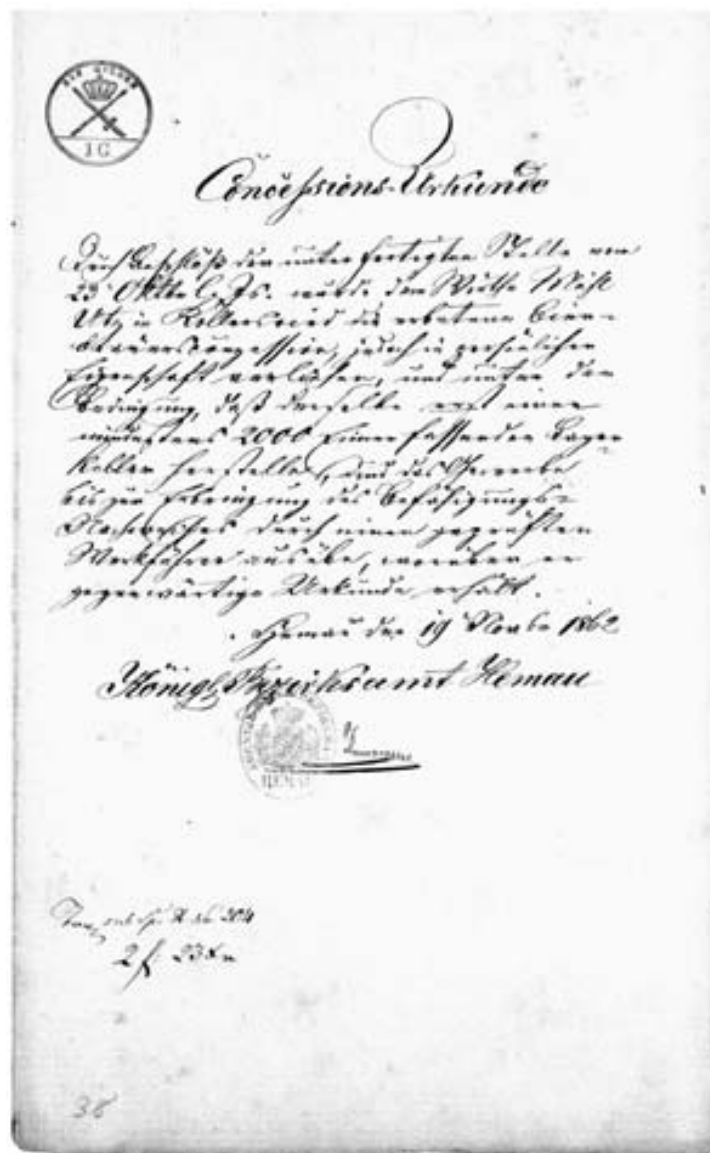 EIN GULDEN
1 G
Concessions-Urkunde
Durch Beschluß der unterfertigten Stelle vom
23 Oktbr l. Js. wurde dem Wirthe
Utz in Kollersried die erbetene Bier-
brauersconzession, jedoch in persönlicher
Eigenschaft verliehen, und unter der
Bedingung, daß derselbe erst einen
mindestens 2000 Eimer fassenden Lager-
keller herstelle, und das Gewerbe
bis zur Erbringung des Befähigungs-
Nachweises durch einen geprüften
Werkführer ausübe, worüber er
gegenwärtige Urkunde erhält.
Hemau den 19 Novbr 1862
Königl. Bezirksamt Hemau
HEMAU
2 f. 23 xr
38